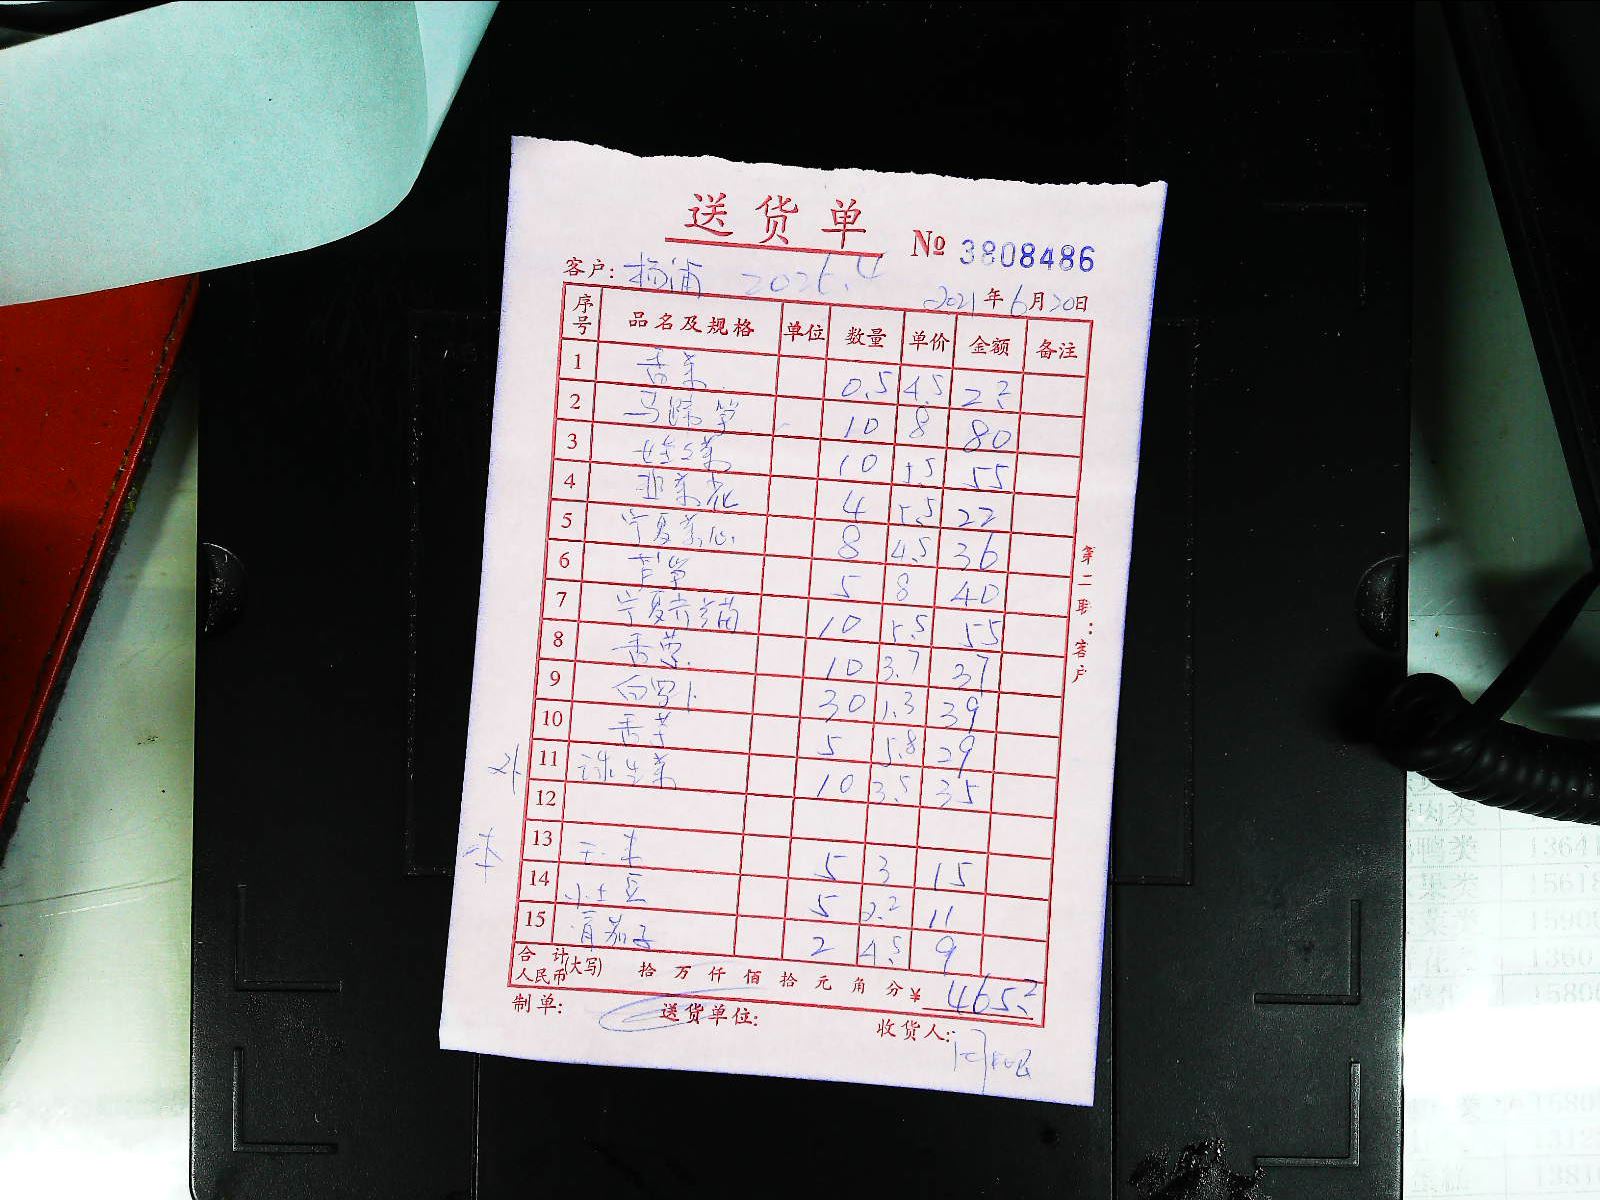 送货单
No 3808486
客户: 杨浦
2021年6月20日
序号 品名及规格 单位 数量 单价 金额 备注
1 苦菜 0.5 4.5 2.2
2 马蹄笋 10 8 80
3 娃娃菜 10 5.5 55
4 韭菜花 4 5.5 22
5 宁夏菜心 8 4.5 36
6 青笋 5 8 40
7 10 5.5 55
8 10 3.7 37
9 白罗卜 30 1.3 39
10 5 5.8 29
11 球生菜 10 3.5 35
12
13 玉米 5 3 15
14 小土豆 5 2.2 11
15 青茄子 2 4.5 9
合计(大写)人民币 拾万仟佰拾元角分¥ 465.2
制单: 送货单位: 收货人:
第二联:客户
肉类
鸭类 13641
类 15618
菜类